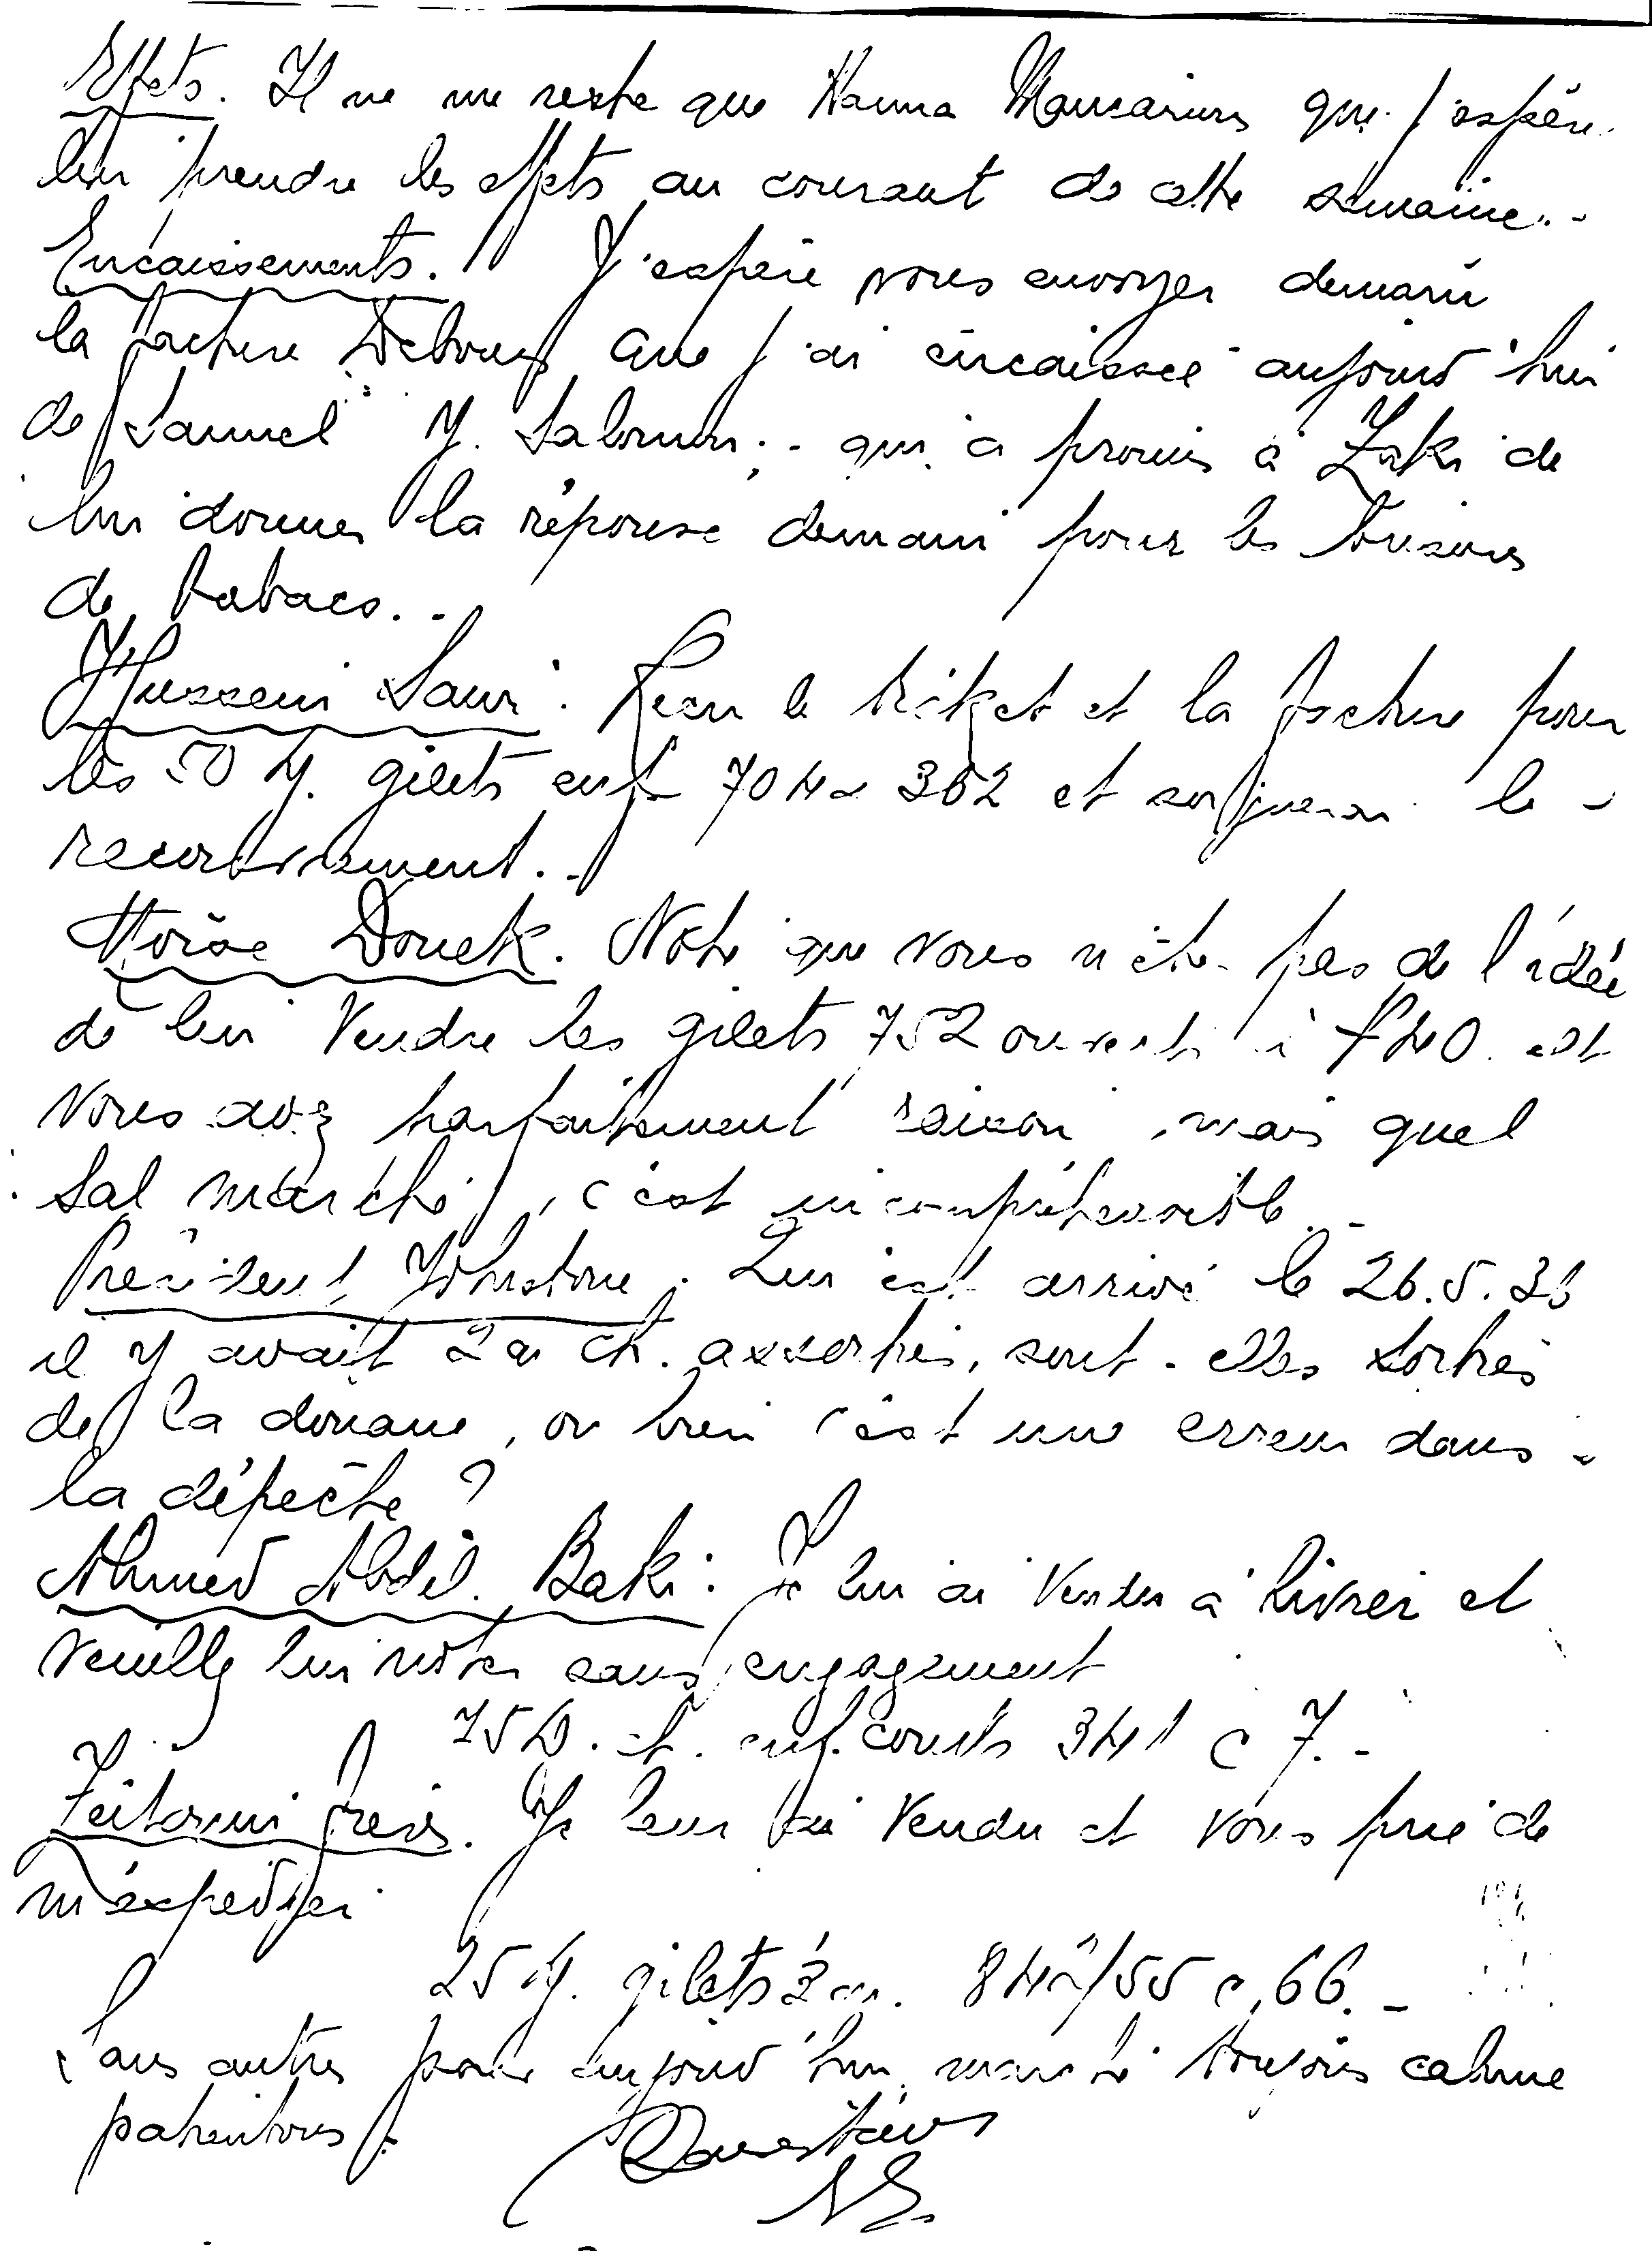 Effets. Il ne me reste que Hanna Maucarius que j'espère
lui prendre les effets au courant de cette semaine..-
Encaissements. J'espère vous envoyer demain
la facture que j'ai encaissée aujourd'hui
de Samuel Y. Salomon.- qui a promis à Zaki de
lui donner la réponse demain pour les
de tabacs..-
Husseini Sauri. Reçu le tiket et la facture pour
les 50 gilets enf. 704 302 et le -
Moïse Douek. Note que vous n'êtes pas de l'idée
de lui vendre les gilets 752 ouverts à 740. et
vous avez parfaitement raison, mais quel
sal marché, c'est incompréhensible.-
Président Johnstone. Qui est arrivé le 26.5.36
il y avait ch. assorties, sont-elles sorties
de la douane, ou bien c'est une erreur dans -
la dépêche ?
Ahmed Abdel Baki: Je lui ai vendu à livrer et
veuillez lui noter sans engagement
75 enf. courts 341 a 7.-
Zeitouni frères. Je leur ai vendu et vous prie de
m'expédier
25 gilets 66.-
Sans autres pour aujourd'hui, marché toujours calme
patientons.